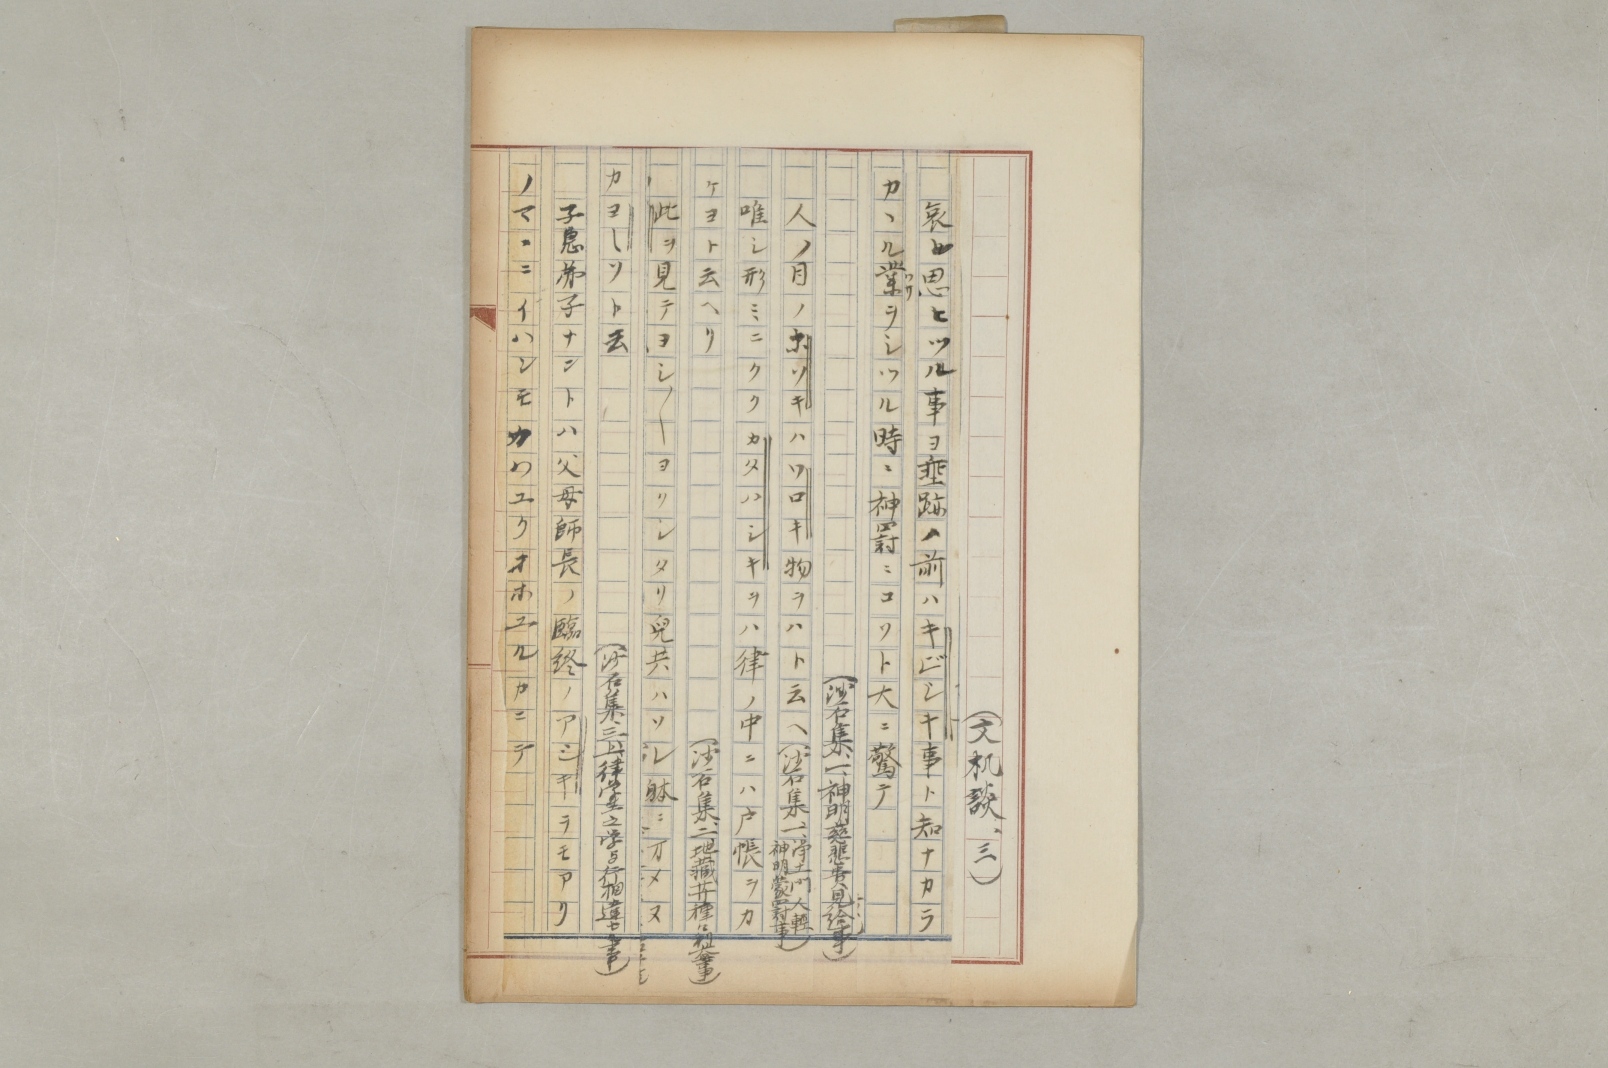 (文机談、三)
哀ト思ヒツル事ヨ垂跡ノ前ハキビシキ事ト知ナカラ
カヽル業ヲシツル時ニ神罸ニコソト大ニ驚テ
(沙石集、一、神明慈悲貴見給事)
人ノ目ノホソキハソロキ物ヲハト云ヘ(沙石集一、浄土門人軽神明蒙罸事)
唯シ形ミニクヽカタハシキヲハ律ノ中ニハ戸帳ヲカ
ケヨト云ヘリ
(沙石集、二、地蔵菩種々利益事)
此ヲ見テヨシ〳〵ヨリシタリ兒共ハソレ躰ニ万メヌ
カヨシソト云
(沙石集、三、律堂之学与行相違セル事)
子息弟子ナントハ父母師長ノ臨終ノアシキヲモアリ
ノマヽニイハンモカワユクオホユルカニテ